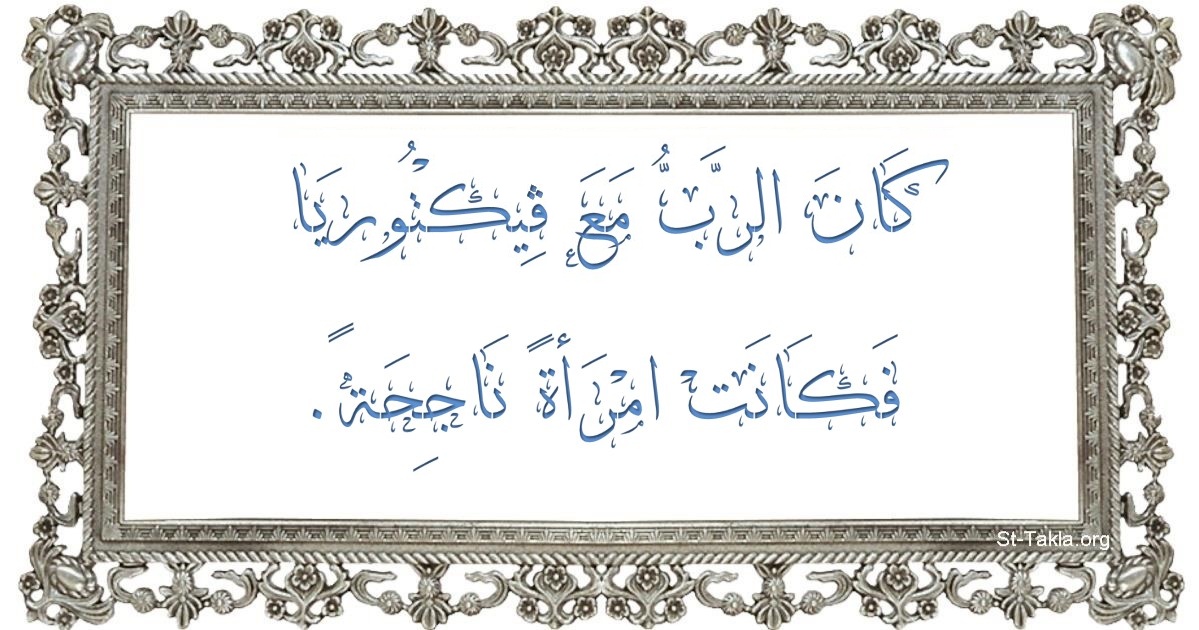 كَانَ الرَّبُّ مَعَ ڤِيكْتُورِيَا
فَكَانَتْ امْرَأَةً نَاجِحَةً.
St-Takla.org